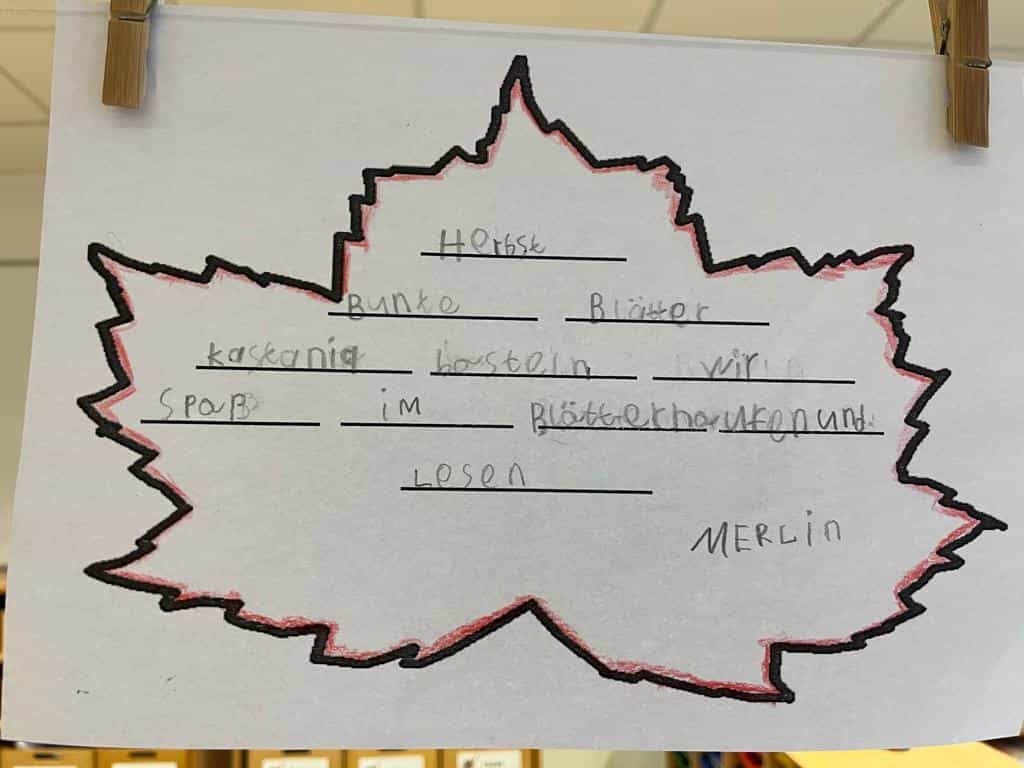 Herbst
Bunte Blätter
kastaniq basteln wir
Spaß im Blätterhaufen und
Lesen
MERLin